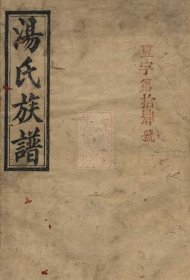 湯氏族譜
字第拾肆號